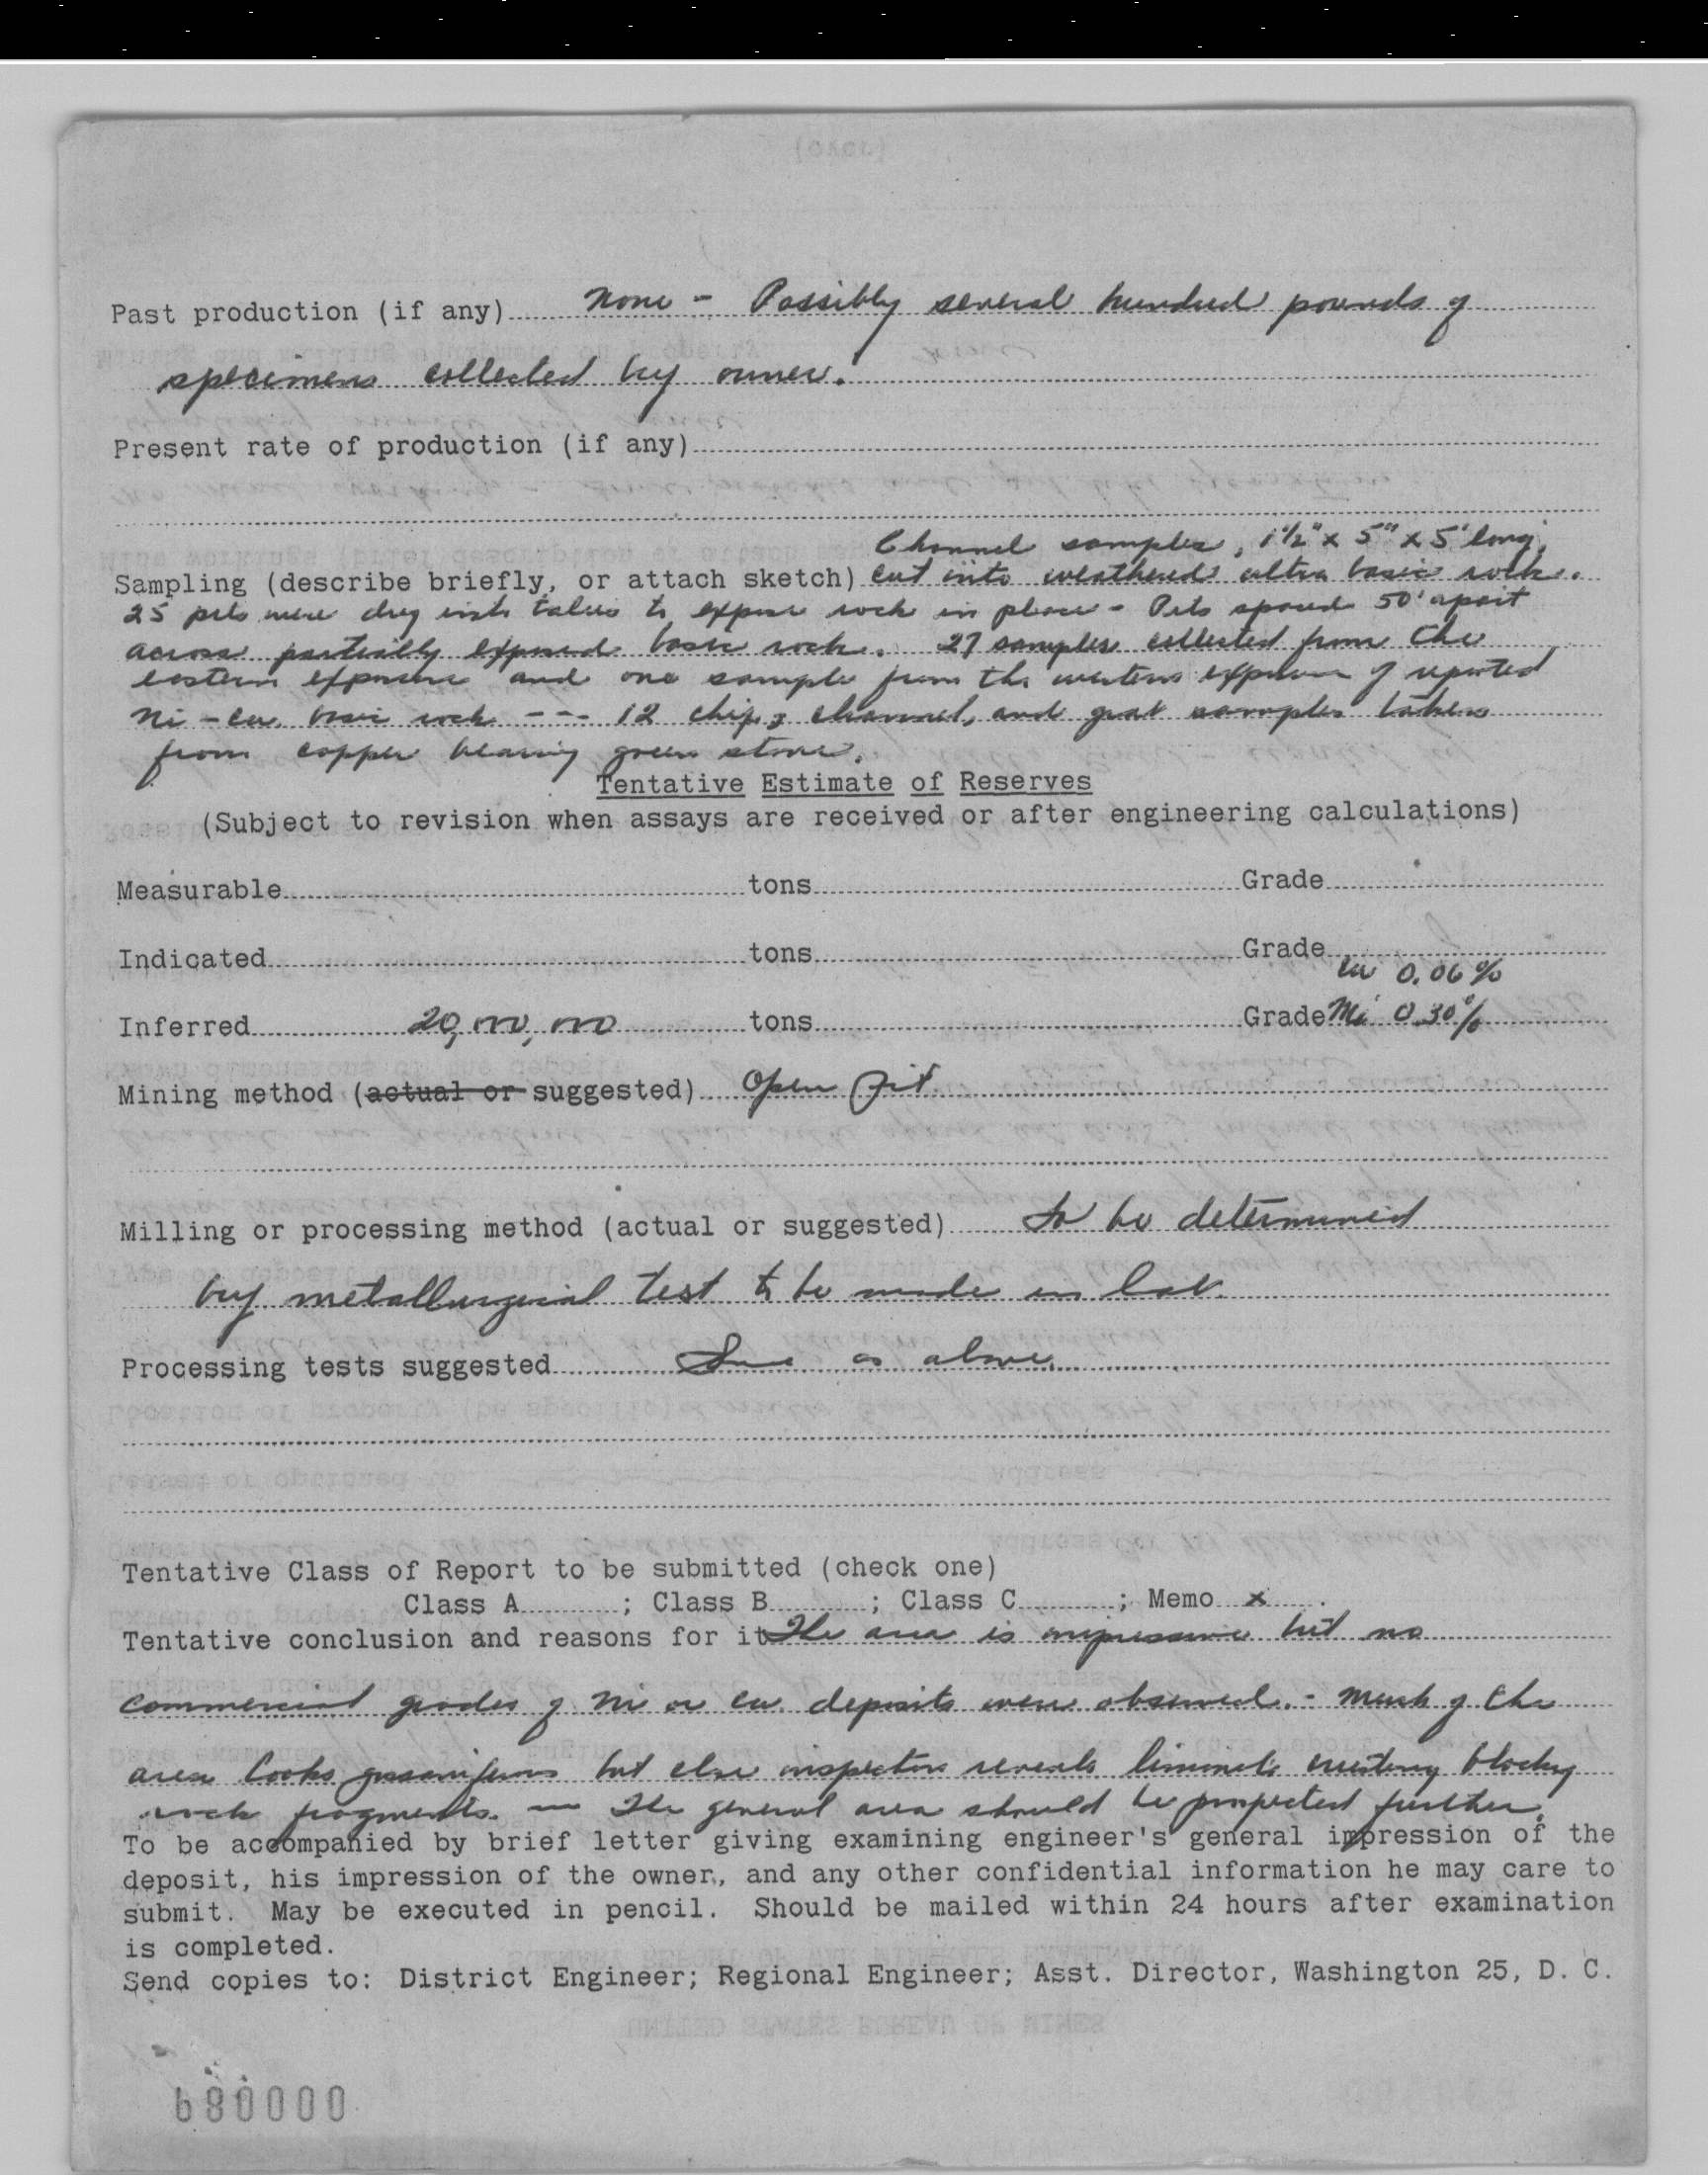 Past production (if any) None - Possibly several hundred pounds of
specimens collected by owner.
Present rate of production (if any)
Channel samples, 1½" x 5" x 5' long,
Sampling (describe briefly, or attach sketch) cut into weathered ultra basic rock.
25 pits were dug into talus to expose rock in place - Pits spaced 50' apart
across partially exposed basic rock. 27 samples collected from the
eastern exposure and one sample from the western exposure of reported
Ni - Cu basic rock --- 12 chip, channel, and grab samples taken
from copper bearing green stone.
Tentative Estimate of Reserves
(Subject to revision when assays are received or after engineering calculations)
Measurable tons Grade
Indicated tons Grade
Cu 0.06%
Inferred 20,000,000 tons Grade Ni 0.30%
Mining method (actual or suggested) Open Pit
Milling or processing method (actual or suggested) To be determined
by metallurgical test to be made in lab.
Processing tests suggested Same as above.
Tentative Class of Report to be submitted (check one)
Class A ; Class B ; Class C ; Memo x .
Tentative conclusion and reasons for it The area is impressive but no
commercial grades of Ni or Cu deposits were observed. - Much of the
area looks gossaniferous but close inspection reveals limonite crusting blocky
rock fragments. — The general area should be prospected further.
To be accompanied by brief letter giving examining engineer's general impression of the
deposit, his impression of the owner, and any other confidential information he may care to
submit. May be executed in pencil. Should be mailed within 24 hours after examination
is completed.
Send copies to: District Engineer; Regional Engineer; Asst. Director, Washington 25, D. C.